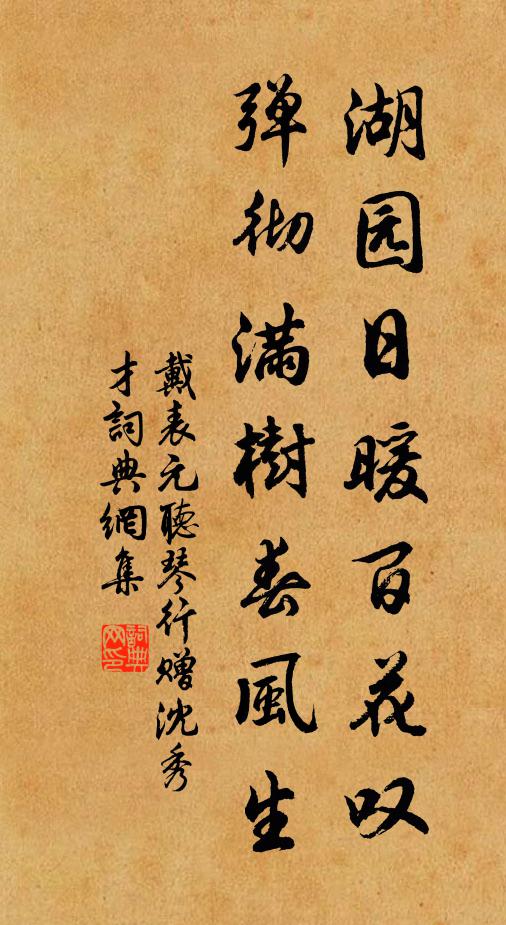 湖园日暖百花叹
弹彻满樹春風生
戴表元聽琴行赠沈秀
才詞典網集
詞典网印